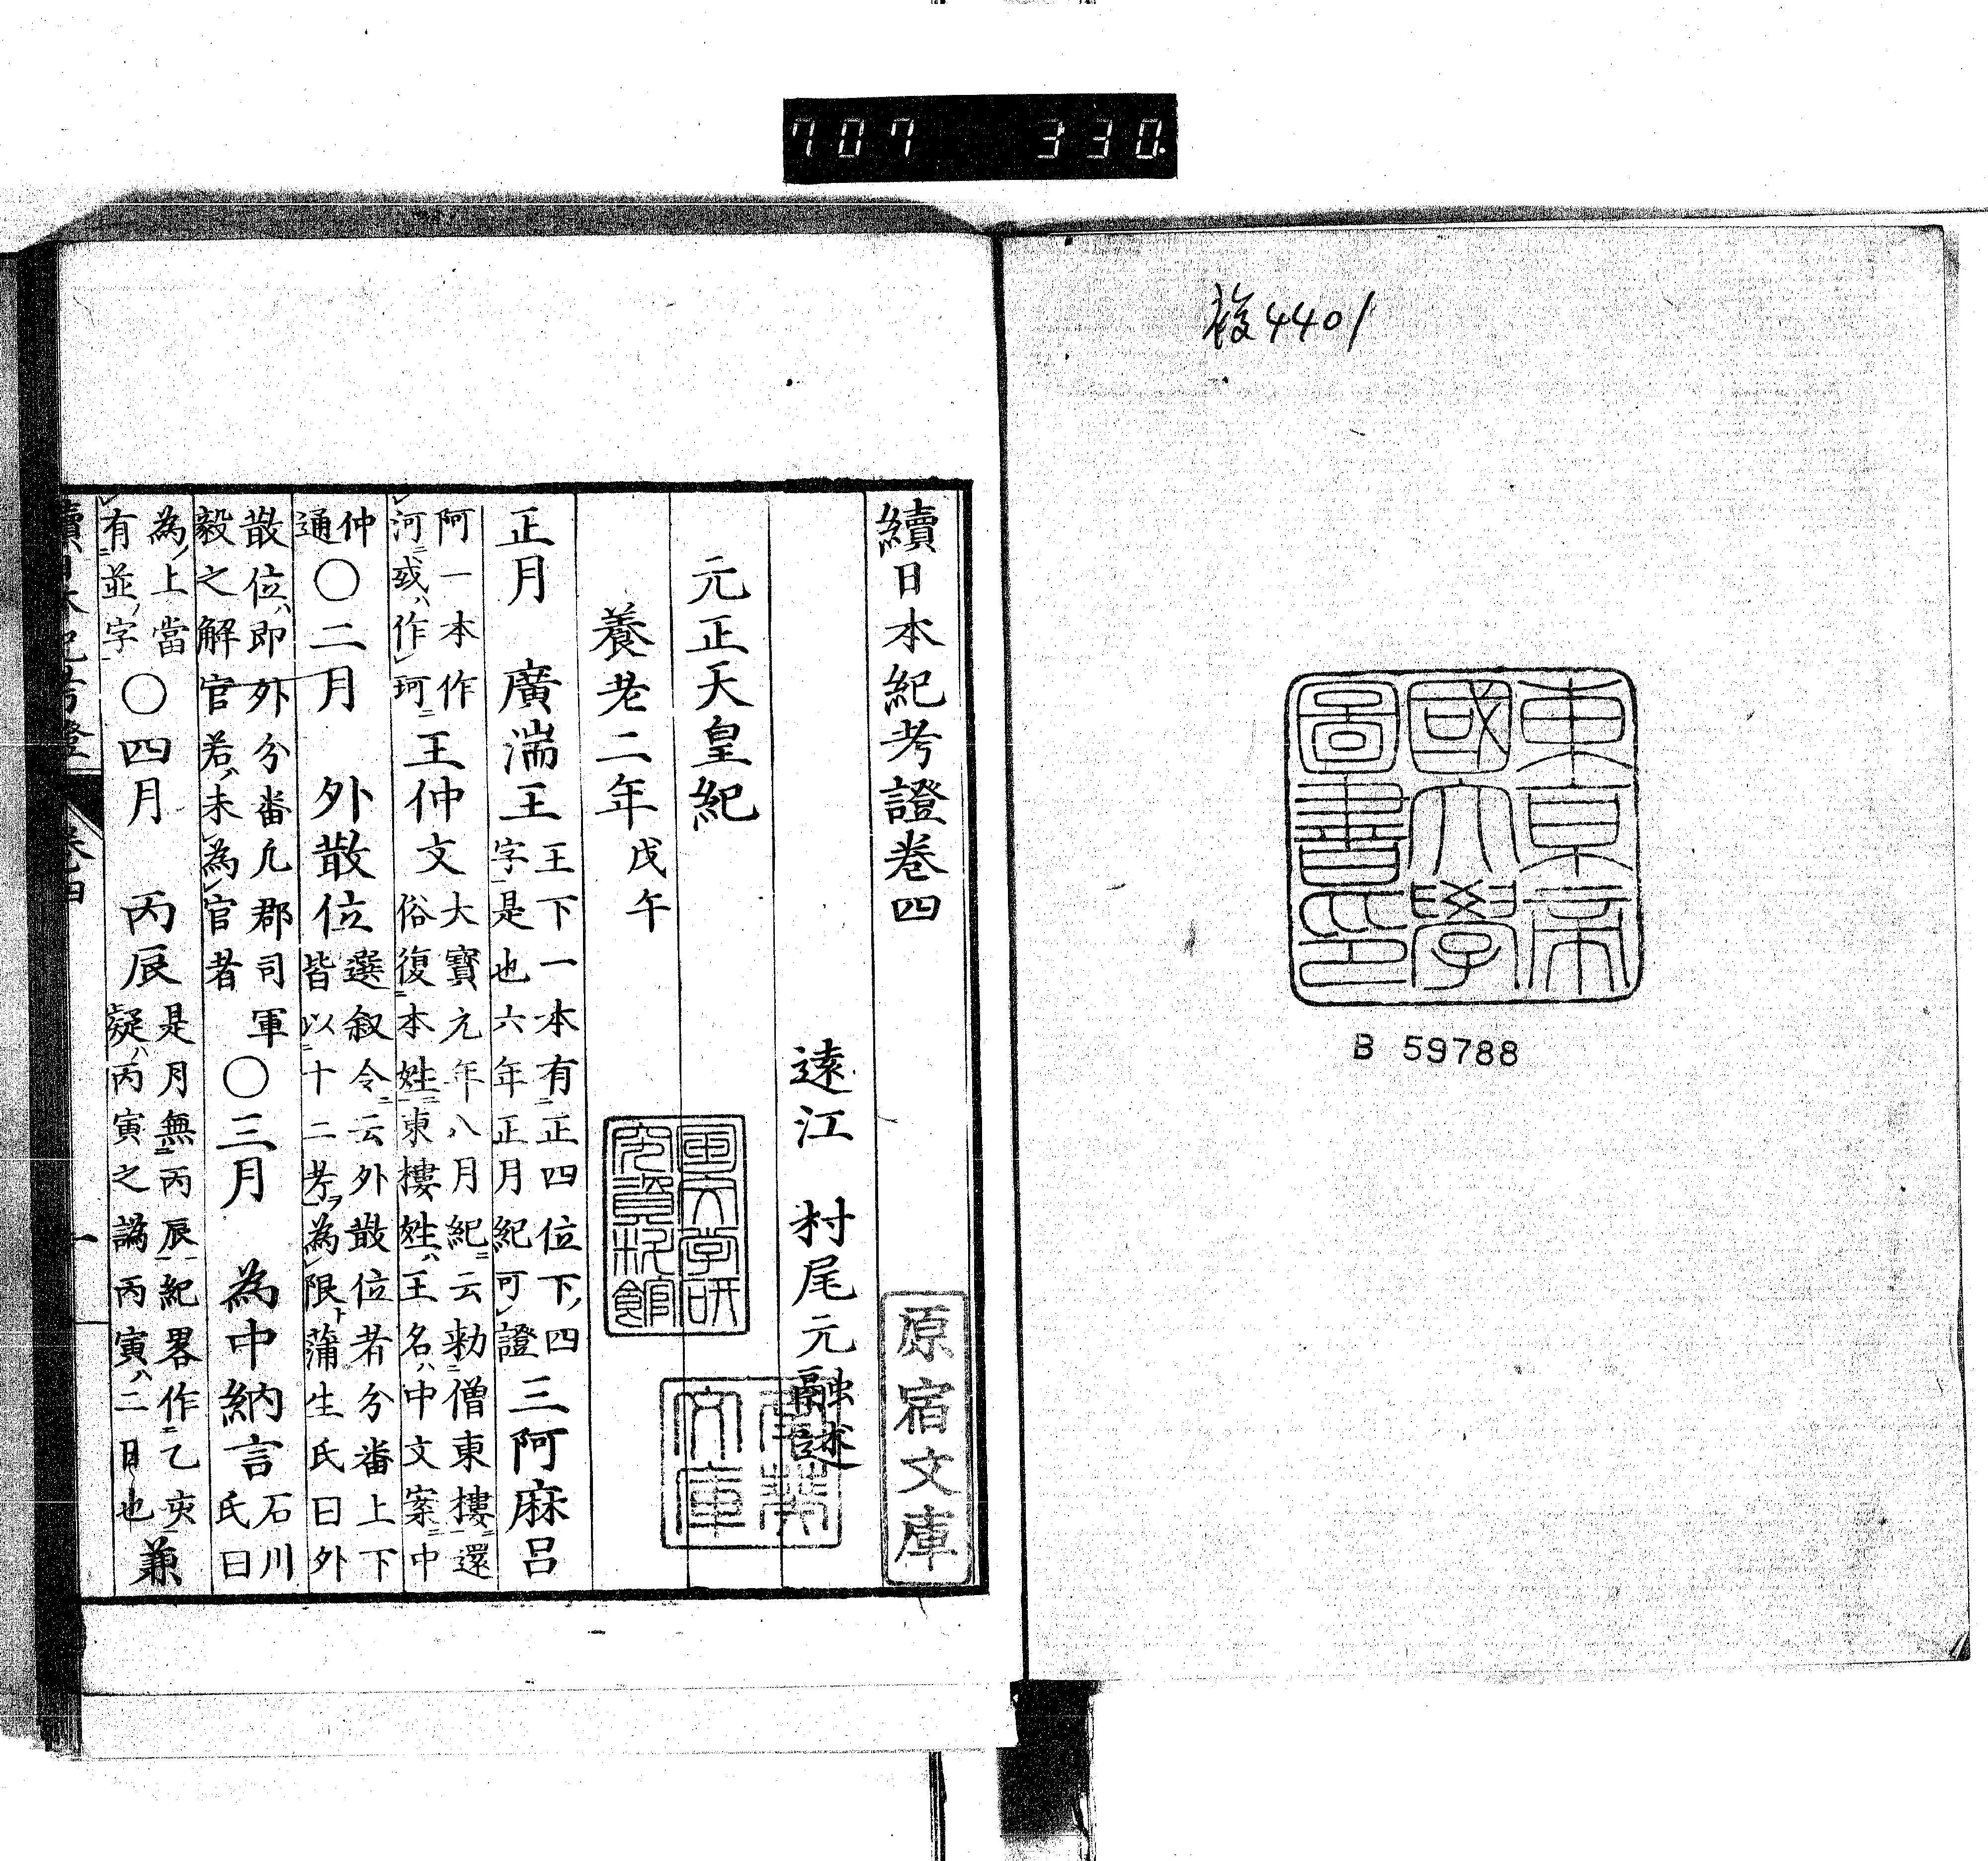 707 330
複4401
東京帝
國大學
圖書印
B 59788
續日本紀考證卷四
原宿文庫
遠江 村尾元融述
元正天皇紀
國文学研
究資料館
文庫
養老二年戊午
正月 廣湍王王下一本有正四位下四字是也六年正月紀可證三阿麻呂
阿一本作河或作珂王仲文大寶元年八月紀云勅僧東樓還俗復本姓東樓姓王名中文案中
仲通〇二月 外散位選叙令云外散位者分番上下皆以十二考為限蒲生氏曰外
散位即外分番凡郡司軍毅之解官若未為官者〇三月 為中納言石川氏曰
為上當有並字〇四月 丙辰是月無丙辰紀畧作乙亥疑丙寅之譌丙寅二日也兼
續日本紀考證 卷四 一